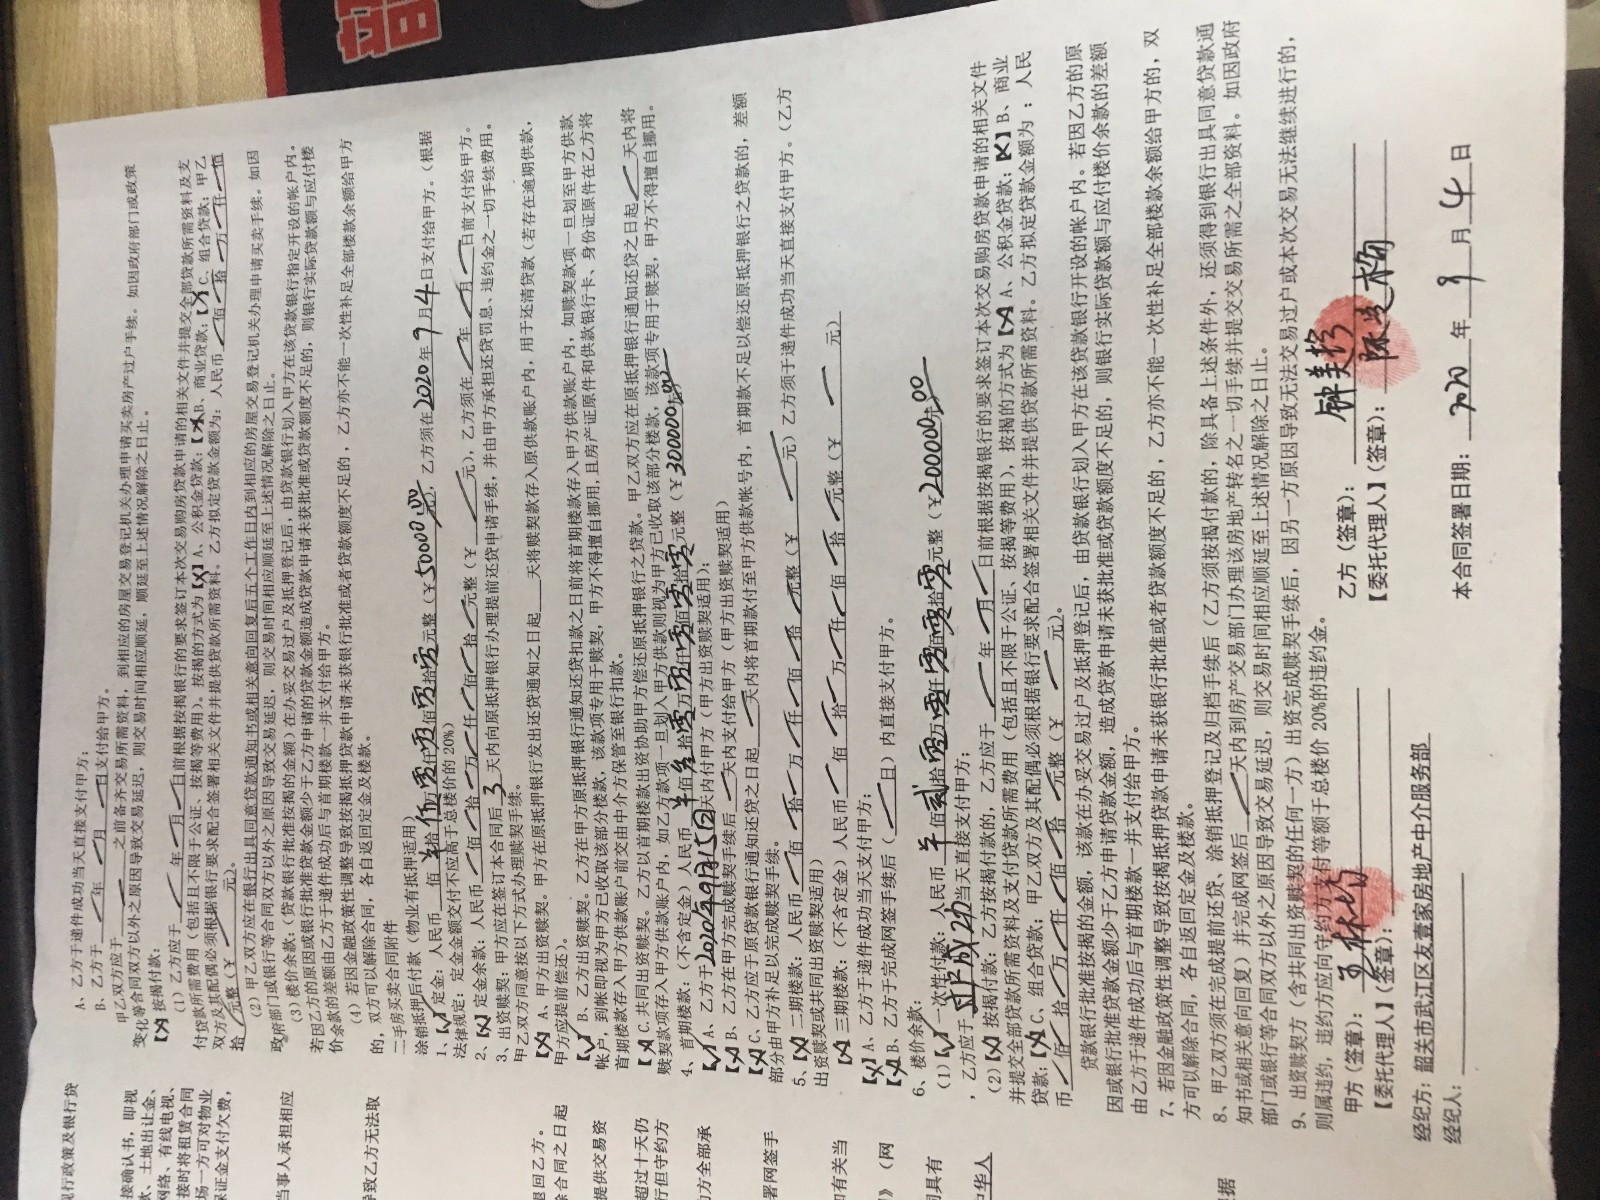 A、乙方于递件成功当天直接支付甲方；
B、乙方于 年 月 日支付给甲方。
甲乙双方应于 之前备齐交易所需资料，到相应的房屋交易登记机关办理申请买卖房产过户手续。如因政府部门或政策
变化等合同双方以外之原因导致交易延迟，则交易时间相应顺延，顺延至上述情况解除之日止。
【✗】按揭付款：
（1）乙方应于 年 月 日前根据按揭银行的要求签订本次交易购房贷款申请的相关文件并提交全部贷款所需资料及支
付贷款所需费用（包括且不限于公证、按揭等费用）。按揭的方式为【✗】A、公积金贷款；【✗】B、商业贷款；【✗】C、组合贷款；甲乙
双方及其配偶必须根据银行要求配合签署相关文件并提供贷款所需资料。乙方拟定贷款金额为：人民币 佰 拾 万 仟 佰
拾 元整（￥ 元）。
（2）甲乙双方应在银行出具同意贷款通知书或相关意向回复后五个工作日内到相应的房屋交易登记机关办理申请买卖手续。如因
政府部门或银行等合同双方以外之原因导致交易延迟，则交易时间相应顺延至上述情况解除之日止。
（3）楼价余款：（贷款银行批准按揭的金额）在办妥交易过户及抵押登记后，由贷款银行划入甲方在该贷款银行指定开设的帐户内。
若因乙方的原因或银行批准贷款金额少于乙方申请的贷款金额造成贷款申请未获批准或贷款额度不足的，则银行实际贷款额与应付楼
价余款的差额由乙方于递件成功后与首期楼款一并支付给甲方。
（4）若因金融政策性调整导致按揭抵押贷款申请未获银行批准或者贷款额度不足的，乙方亦不能一次性补足全部楼款余额给甲方
的，双方可以解除合同，各自返回定金及楼款。
二手房买卖合同附件
涂销抵押后付款（物业有抵押适用）
1、【✓】定金：人民币 佰 拾伍万零仟零佰零拾零元整（￥50000.00元），乙方须在2020年9月4日支付给甲方。（根据
法律规定：定金金额交付不应高于总楼价的20%）
2、【✗】定金余款：人民币 佰 拾 万 仟 佰 拾 元整（￥ 元），乙方须在 年 月 日前支付给甲方。
3、出资赎契：甲方应在签订本合同后3天内向原抵押银行办理提前还贷申请手续，并由甲方承担还贷罚息、违约金之一切手续费用。
甲乙双方同意按以下方式办理赎契手续。
【✗】A、甲方出资赎契。甲方在原抵押银行发出还贷通知之日起 天将赎契款存入原供款账户内，用于还清贷款（若存在逾期供款，
甲方应提前偿还）。
【✓】B、乙方出资赎契。乙方在甲方原抵押银行通知还贷扣款之日前将首期楼款存入甲方供款账户内，如赎契款项一旦划至甲方供款
帐户，到帐即视为甲方已收取该部分楼款，该款项专用于赎契，甲方不得擅自挪用，且房产证原件和供款银行卡、身份证原件在乙方将
首期楼款存入甲方供款账户前交由中介方保管至银行扣款。
【✗】C、共同出资赎契。乙方以首期楼款出资协助甲方偿还原抵押银行之贷款。甲乙双方应在原抵押银行通知还贷之日起 天内将
赎契款项存入甲方供款账户内，如乙方款项一旦划入甲方供款则视为甲方已收取该部分楼款，该款项专用于赎契，甲方不得擅自挪用。
4、首期楼款：（不含定金）人民币 佰叁拾零万零仟零佰零拾零元整（￥300000.00元）
【✓】A、乙方于2020年9月15日天内付甲方（甲方出资赎契适用）；
【✗】B、乙方在甲方完成赎契手续后 天内支付给甲方（甲方出资赎契适用）
【✗】C、乙方应于原贷款银行通知还贷之日起 天内将首期款付至甲方供款帐号内，首期款不足以偿还原抵押银行之贷款的，差额
部分由甲方补足以完成赎契手续。
5、【✗】二期楼款：人民币 佰 拾 万 仟 佰 拾 元整（￥ 元）乙方须于递件成功当天直接支付甲方。（乙方
出资赎契或共同出资赎契适用）
【✗】三期楼款：（不含定金）人民币 佰 拾 万 仟 佰 拾 元整（￥ 元）
【✗】A、乙方于递件成功当天支付甲方；
【✗】B、乙方于完成网签手续后（ 日）内直接支付甲方。
6、楼价余款：
（1）【✓】一次性付款：人民币 佰贰拾零万零仟零佰零拾零元整（￥200000.00元）
，乙方应于 当天直接支付甲方；
（2）【✗】按揭付款：乙方按揭付款的，乙方应于 年 月 日前根据按揭银行的要求签订本次交易购房贷款申请的相关文件
并提交全部贷款所需资料及支付贷款所需费用（包括且不限于公证、按揭等费用），按揭的方式为【✗】A、公积金贷款；【✗】B、商业
贷款；【✗】C、组合贷款；甲乙双方及其配偶必须根据银行要求配合签署相关文件并提供贷款所需资料。乙方拟定贷款金额为：人民
币 佰 拾 万 仟 佰 拾 元整（￥ 元）。
贷款银行批准按揭的金额，该款在办妥交易过户及抵押登记后，由贷款银行划入甲方在该贷款银行开设的帐户内。若因乙方的原
因或银行批准贷款金额少于乙方申请贷款金额，造成贷款申请未获批准或贷款额度不足的，则银行实际贷款额与应付楼价余款的差额
由乙方于递件成功后与首期楼款一并支付给甲方。
7、若因金融政策性调整导致按揭抵押贷款申请未获银行批准或者贷款额度不足的，乙方亦不能一次性补足全部楼款余额给甲方的，双
方可以解除合同，各自返回定金及楼款。
8、甲乙双方须在完成提前还贷、涂销抵押登记及归档手续后（乙方须按揭付款的，除具备上述条件外，还须得到银行出具同意贷款通
知书或相关意向回复）并完成网签后 天内到房产交易部门办理该房地产转名之一切手续并提交交易所需之全部资料。如因政府
部门或银行等合同双方以外之原因导致交易延迟，则交易时间相应顺延至上述情况解除之日止。
9、出资赎契方（含共同出资赎契的任何一方）出资完成赎契手续后，因另一方原因导致无法交易过户或本次交易无法继续进行的，
则属违约，违约方应向守约方支付等额于总楼价20%的违约金。
甲方（签章）：
乙方（签章）：
【委托代理人】（签章）：
【委托代理人】（签章）：
经纪方：韶关市武江区友壹家房地产中介服务部
经纪人：
本合同签署日期：2020年9月4日
现行政策及银行贷
接确认书，即视
款、土地出让金、
网络、有线电视、
接时将租赁合同
场一方可对物业
保证金支付欠费，
当事人承担相应
导致乙方无法取
退回乙方。
除合同之日起
提供交易资
超过十天仍
行但守约方
方全部承
署网签手
和有关当
》（网
同具有
中华人
据